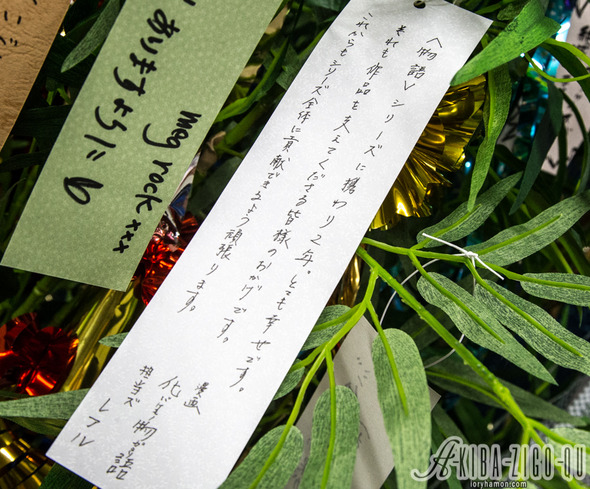 〈物語〉シリーズに携わり2年。とても幸せです。
それも作品を支えてくださる皆様のおかげです。
これからもシリーズ全体に貢献できるよう頑張ります。
漫画
化物語
担当ズ
ありますように
meg rock xxx
AKIBA-ZIGO-QU
ioryhamon.com